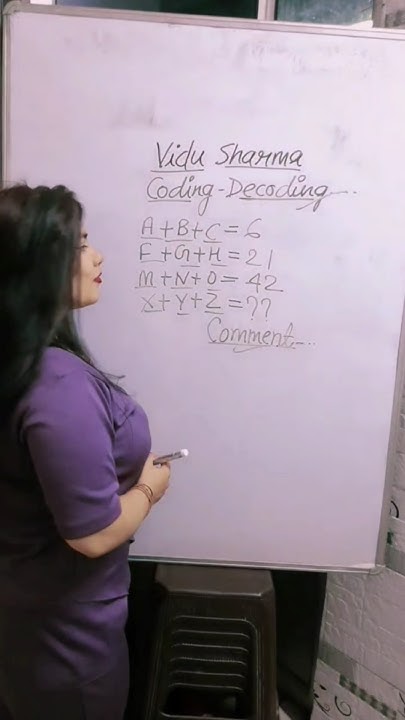 Vidu Sharma
Coding-Decoding...
A+B+C=6
F+G+H=21
M+N+O=42
X+Y+Z=??
Comment...